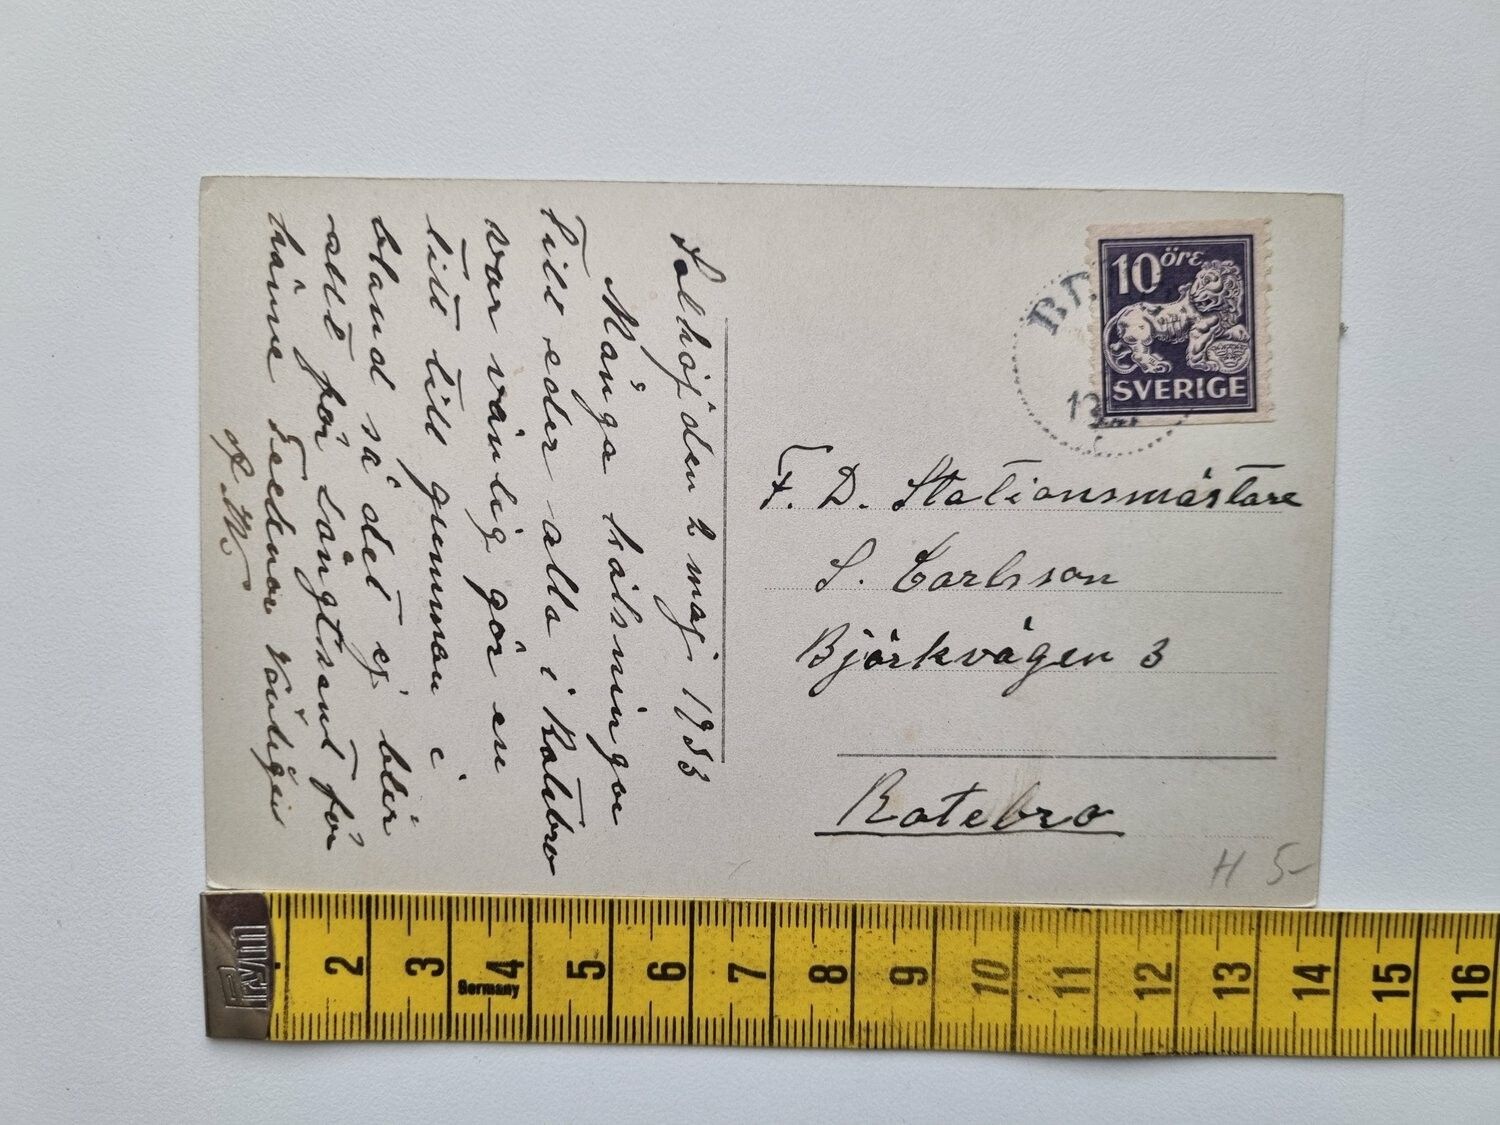 Solhöjden 2 maj 1933
Många hälsningar
Till eder alla i Rotebro
var vänlig gör en
titt till gumman i
bland så det ej blir
allt för Långtsamt för
hänne Tecknar Vänligen
10 öre
SVERIGE
F. D. Stationsmästare
S. Carlsson
Björkvägen 3
Rotebro
H 5-
Prym
2 3 4 5 6 7 8 9 10 11 12 13 14 15 16
Germany